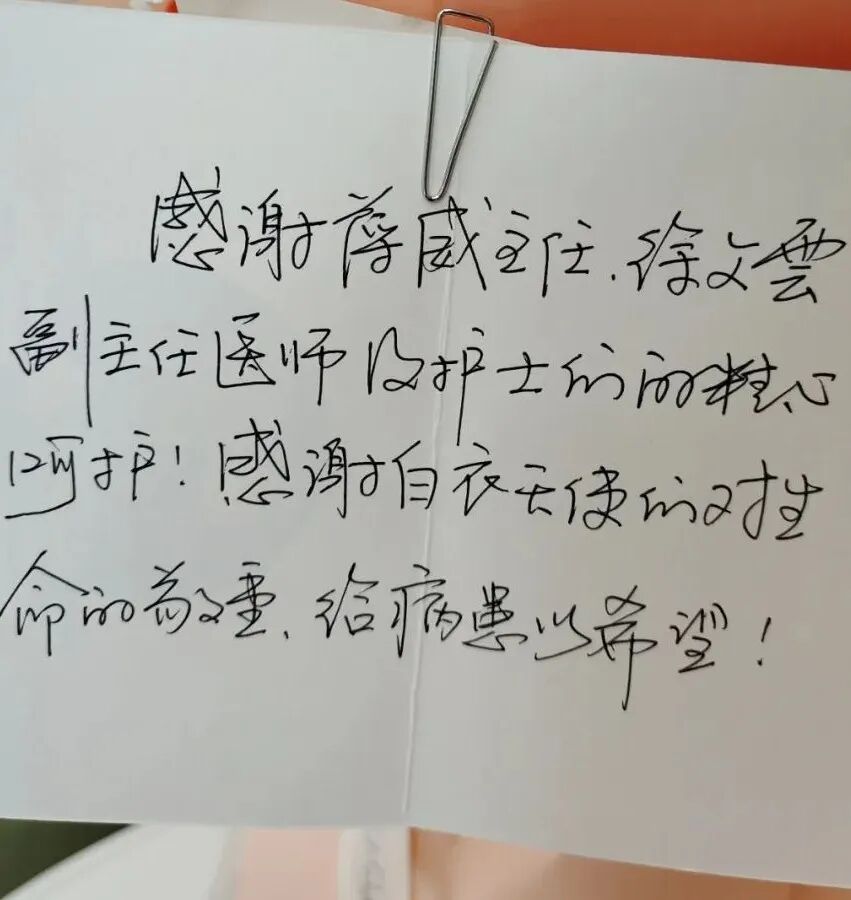 感谢薛威主任、徐文雲
副主任医师及护士们的精心
呵护！感谢白衣天使们对生
命的敬重、给病患以希望！